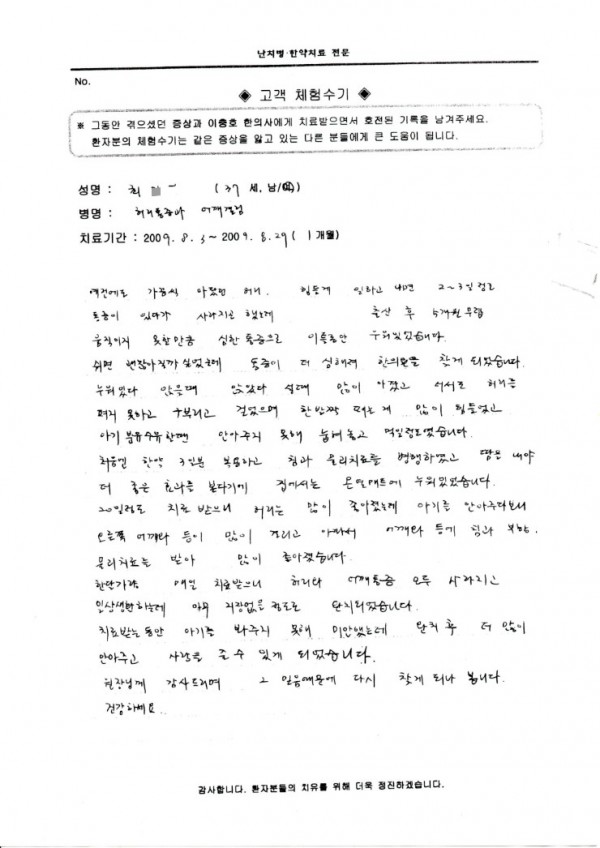 난치병·한약치료 전문
No.
◈ 고객 체험수기 ◈
※ 그동안 겪으셨던 증상과 이충호 한의사에게 치료받으면서 호전된 기록을 남겨주세요.
환자분의 체험수기는 같은 증상을 앓고 있는 다른 분들에게 큰 도움이 됩니다.
성명 : 최 ( 37 세, 남/여)
병명 : 허리통증과 어깨결림
치료기간 : 2009. 8. 3 ~ 2009. 8. 29 ( 1 개월)
예전에도 가끔씩 아팠던 허리. 힘들게 일하고 나면 2~3일 정도
통증이 있다가 사라지곤 했는데 출산 후 5개월 무렵
움직이지 못할만큼 심한 통증으로 이틀동안 누워있었습니다.
쉬면 괜찮아질까 싶었는데 통증이 더 심해져 한의원을 찾게 되었습니다.
누워있다 앉을때 앉았다 설때 많이 아팠고 어서도 허리를
펴지 못하고 구부리고 걸었으며 한발짝 떼는게 많이 힘들었고
아기 분유수유할땐 안아주지 못해 눕혀놓고 먹일정도였습니다.
처음엔 한약 3일분 복용하고 침과 물리치료를 병행하였고 땀을 내야
더 좋은 효과를 본다기에 집에서는 온돌매트에 누워있었습니다.
20일정도 치료 받으니 허리는 많이 좋아졌는데 아기를 안아주다보니
오른쪽 어깨와 등이 많이 결리고 아파서 어깨와 등에 침과 부항,
물리치료를 받아 많이 좋아졌습니다.
한달가량 매일 치료받으니 허리와 어깨통증 모두 사라지고
일상생활하는데 아무 지장없을 정도로 완치되었습니다.
치료받는 동안 아기를 봐주지 못해 미안했는데 완치 후 더 많이
안아주고 사랑을 줄 수 있게 되었습니다.
원장님께 감사드리며 그 믿음때문에 다시 찾게 되나 봅니다.
건강하세요.
감사합니다. 환자분들의 치유를 위해 더욱 정진하겠습니다.